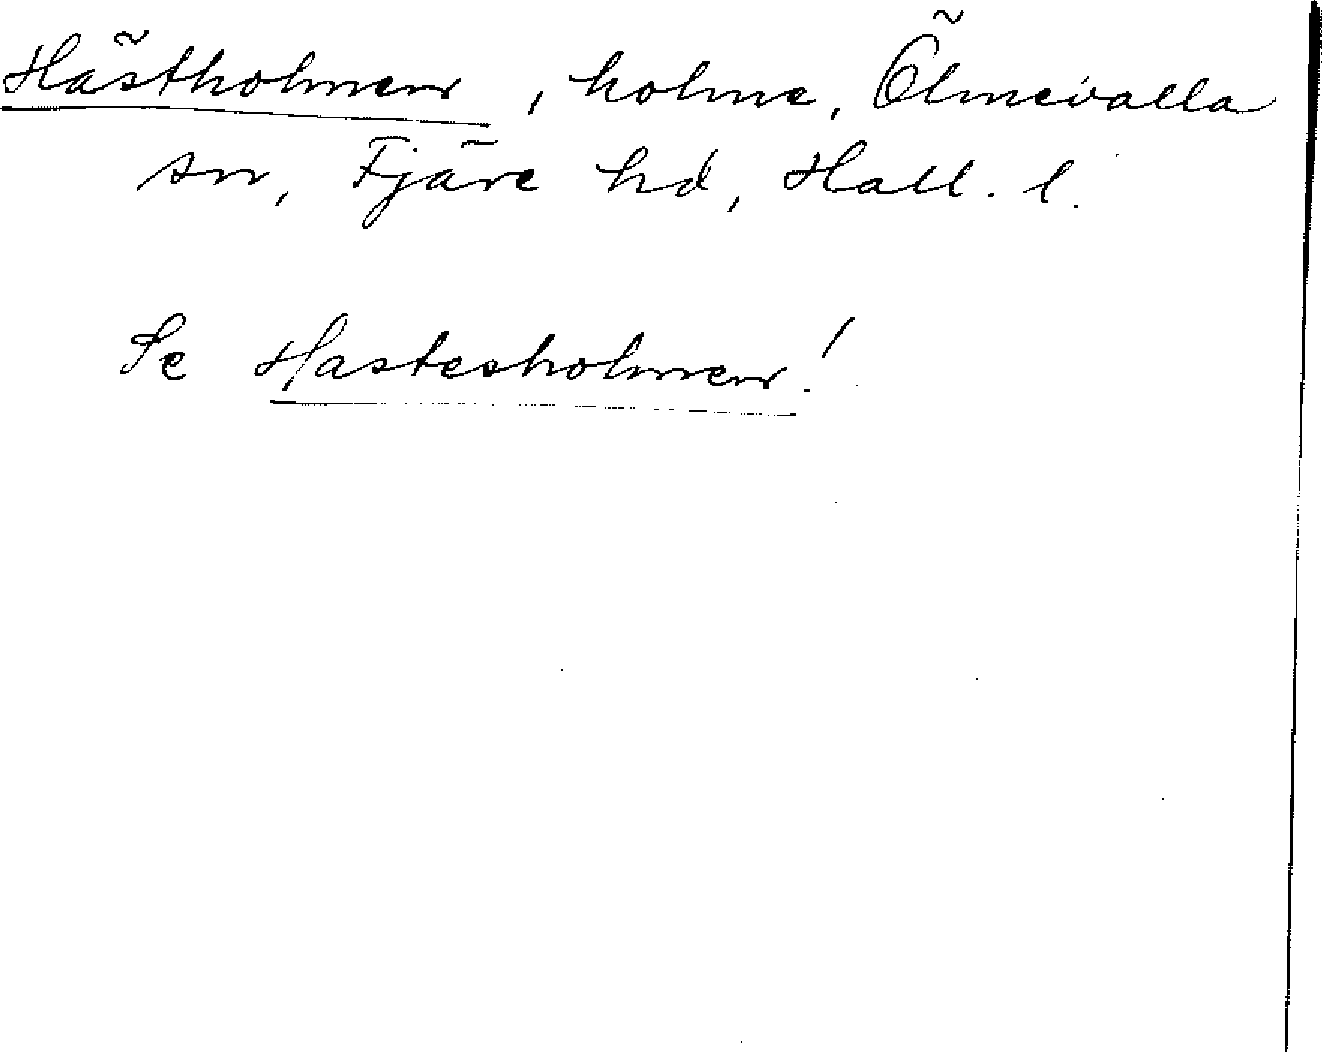 Hästholmen, holme, Ölmevalla
sn, Fjäre hd, Hall. l.
Se Hastesholmen!